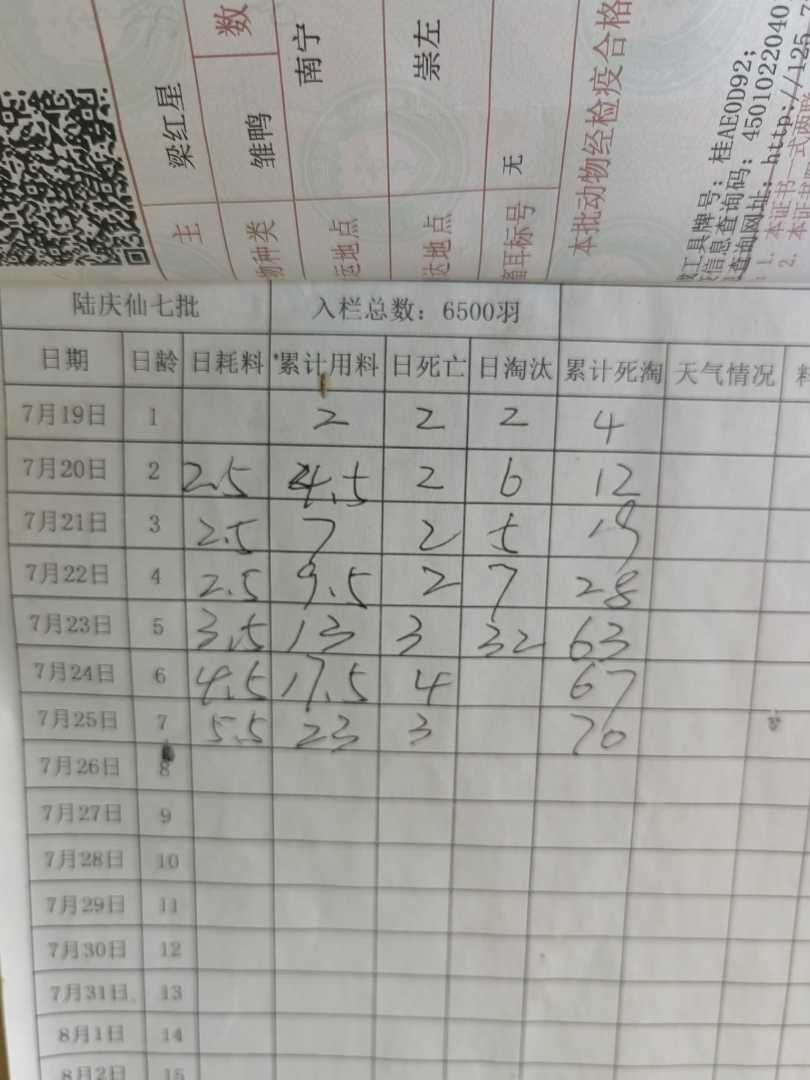 数
梁红星
雏鸭
南宁
崇左
无
主
物种类
运地点
达地点
畜耳标号
本批动物经检疫合格
工具牌号：桂AE0D92；
信息查询码：4501022040
查询网址：http://125.7
1. 本证书一式两联
2. 本证
陆庆仙七批 入栏总数：6500羽
日期 日龄 日耗料 累计用料 日死亡 日淘汰 累计死淘 天气情况 料
7月19日 1 2 2 2 4
7月20日 2 2.5 4.5 2 6 12
7月21日 3 2.5 7 2 5 19
7月22日 4 2.5 9.5 2 7 28
7月23日 5 3.5 13 3 32 63
7月24日 6 4.5 17.5 4 67
7月25日 7 5.5 23 3 70
7月26日 8
7月27日 9
7月28日 10
7月29日 11
7月30日 12
7月31日 13
8月1日 14
8月2日 15